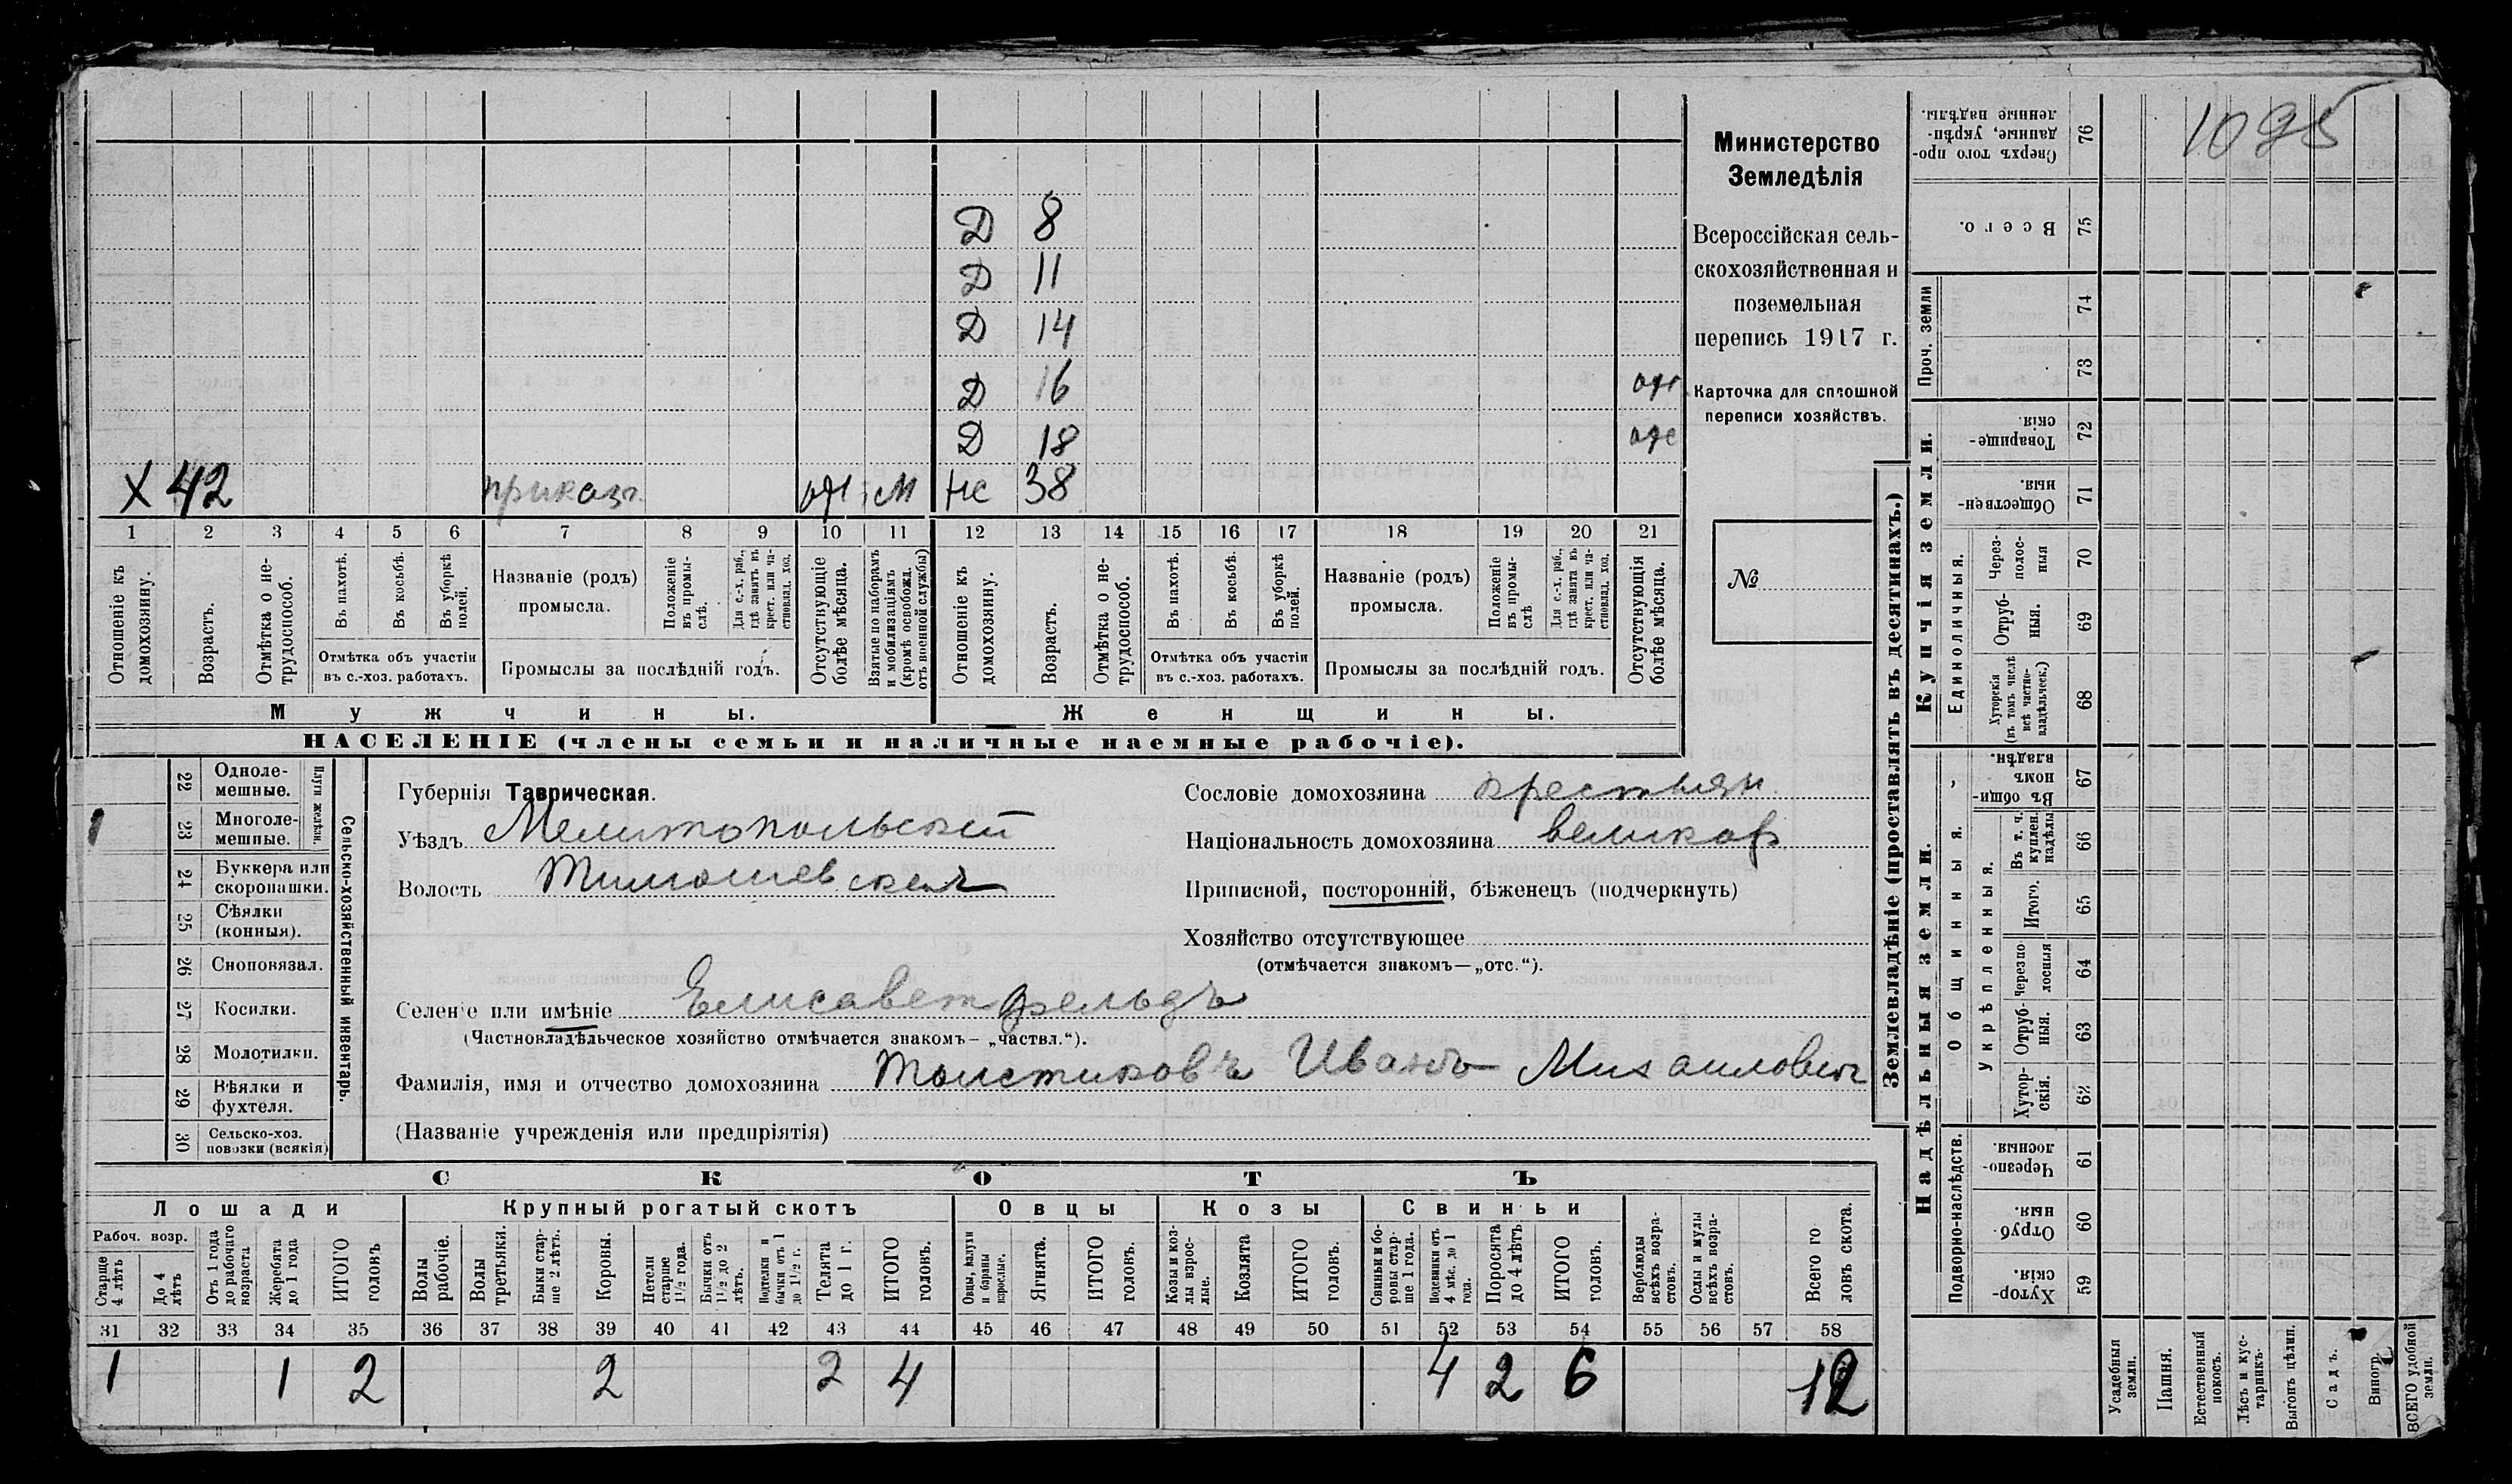 1095
Д 8
Д 11
Д 14
Д 16 отс
Д 18 отс
Х 42 приказч. отс М Нс 38
1 2 3 4 5 6 7 8 9 10 11 12 13 14 15 16 17 18 19 20 21
Отношеніе къ домохозяину.
Возрастъ.
Отмѣтка о нетрудоспособ.
Въ пахотѣ.
Въ косьбѣ.
Въ уборкѣ полей.
Отмѣтка объ участіи
въ с.-хоз. работахъ.
Названіе (родъ)
промысла.
Положеніе въ промыслѣ.
Для с.-х. раб., гдѣ занятъ въ крест. или частновлад. хоз.
Промыслы за послѣдній годъ.
Отсутствующіе болѣе мѣсяца.
Взятые по наборамъ и мобилизаціямъ (кромѣ освобожд. отъ военной службы)
Отношеніе къ домохозяину.
Возрастъ.
Отмѣтка о нетрудоспособ.
Въ пахотѣ.
Въ косьбѣ.
Въ уборкѣ полей.
Отмѣтка объ участіи
въ с.-хоз. работахъ.
Названіе (родъ)
промысла.
Положеніе въ промыслѣ
Для с.-х. раб., гдѣ занята въ крест. или частновлад. хоз.
Промыслы за послѣдній годъ.
Отсутствующія болѣе мѣсяца.
Мужчины.
Женщины.
НАСЕЛЕНІЕ (члены семьи и наличные наемные рабочіе).
Министерство
Земледѣлія
Всероссійская сель-
скохозяйственная и
поземельная
перепись 1917 г.
Карточка для сплошной
переписи хозяйствъ.
№
22 Одноле-
мешные.
23 Многоле-
мешные.
Плуги желѣзн.
24 Буккера или
скоропашки.
25 Сѣялки
(конныя).
26 Сноповязал.
27 Косилки.
28 Молотилки.
29 Вѣялки и
фухтеля.
30 Сельско-хоз.
повозки (всякія)
Сельско-хозяйственный инвентарь.
1
Губернія Таврическая.
Уѣздъ Мелитопольскій
Волость Тимошевская
Сословіе домохозяина крестьян.
Національность домохозяина великор.
Приписной, посторонній, бѣженецъ (подчеркнуть)
Хозяйство отсутствующее
(отмѣчается знакомъ—„отс.“).
Селеніе или имѣніе Елисаветфельдъ
(Частновладѣльческое хозяйство отмѣчается знакомъ— „частвл.“).
Фамилія, имя и отчество домохозяина Толстиковъ Иванъ Михаиловичъ
(Названіе учрежденія или предпріятія)
СКОТЪ
Лошади Крупный рогатый скотъ Овцы Козы Свиньи
Рабоч. возр.
Старше 4 лѣтъ
До 4 лѣтъ
Отъ 1 года до рабочаго возраста
Жеребята до 1 года
ИТОГО головъ
Волы рабочіе.
Волы третьяки.
Быки старше 2 лѣтъ.
Коровы.
Нетели старше 1½ года.
Бычки отъ 1½ до 2 лѣтъ.
Подтелки и бычки отъ 1 до 1½ г.
Телята до 1 г.
ИТОГО головъ.
Овцы, валухи и бараны взрослые.
Ягнята.
ИТОГО головъ.
Козы и козлы взрослые.
Козлята
ИТОГО головъ.
Свиньи и боровы старше 1 года.
Подсвинки отъ 4 мѣс. до 1 года.
Поросята до 4 лѣтъ
ИТОГО головъ.
Верблюды всѣхъ возрастовъ.
Ослы и мулы всѣхъ возрастовъ.
Всего головъ скота.
31 32 33 34 35 36 37 38 39 40 41 42 43 44 45 46 47 48 49 50 51 52 53 54 55 56 57 58
1 1 2 2 2 4 4 2 6 12
Землевладѣніе (проставлять въ десятинахъ.)
Сверхъ того проданные, укрѣпленные надѣлы. 76
Всего. 75
Проч. земли
74
73
Купчія земли.
Товарищескія 72
Общественныя. 71
Единоличныя.
Черезполосныя 70
Отрубныя. 69
Хуторскія (въ томъ числѣ всѣ частновладѣльческ.) 68
Надѣльныя земли.
Общинныя.
Въ общинномъ владѣн. 67
Укрѣпленныя.
Въ т. ч. куплен. надѣлы 66
Итого. 65
Черезполосныя 64
Отрубныя. 63
Хуторскія. 62
Подворно-наслѣдств.
Черезполосныя. 61
Отрубныя. 60
Хуторскія. 59
Усадебныя земли.
Пашня.
Естественный покосъ.
Лѣсъ и кустарникъ.
Выгонъ цѣлин.
Садъ.
Виногр.
ВСЕГО удобной земли.